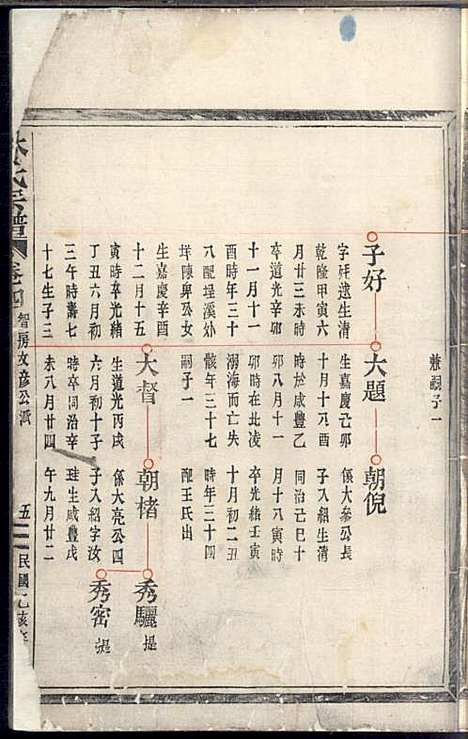 兼嗣子一
子好
生清
乾隆甲寅六
月廿三未時
卒道光辛卯
十一月十一
酉時年三十
八配埕溪外
垟陳公女
生嘉慶辛酉
十二月十五
寅時卒光緒
丁丑六月初
三午時壽七
十七生子三
大題
生嘉慶己卯
十月十八酉
時於咸豐乙
卯八月十一
卯時在北凌
溺海而亡失
骸年三十七
嗣子一
大督
生道光丙戌
六月初十子
時卒同治辛
未八月廿四
朝倪
係大參公長
子入紹生清
同治己巳十
月十八寅時
卒光緒壬寅
十月初二丑
時年三十四
配王氏出
朝楮
係大亮公四
子入紹字汝
珪生咸豐戊
午九月廿二
秀驪 提
秀密 提
林氏宗譜 卷四 智房文彥公派 五 民國乙亥